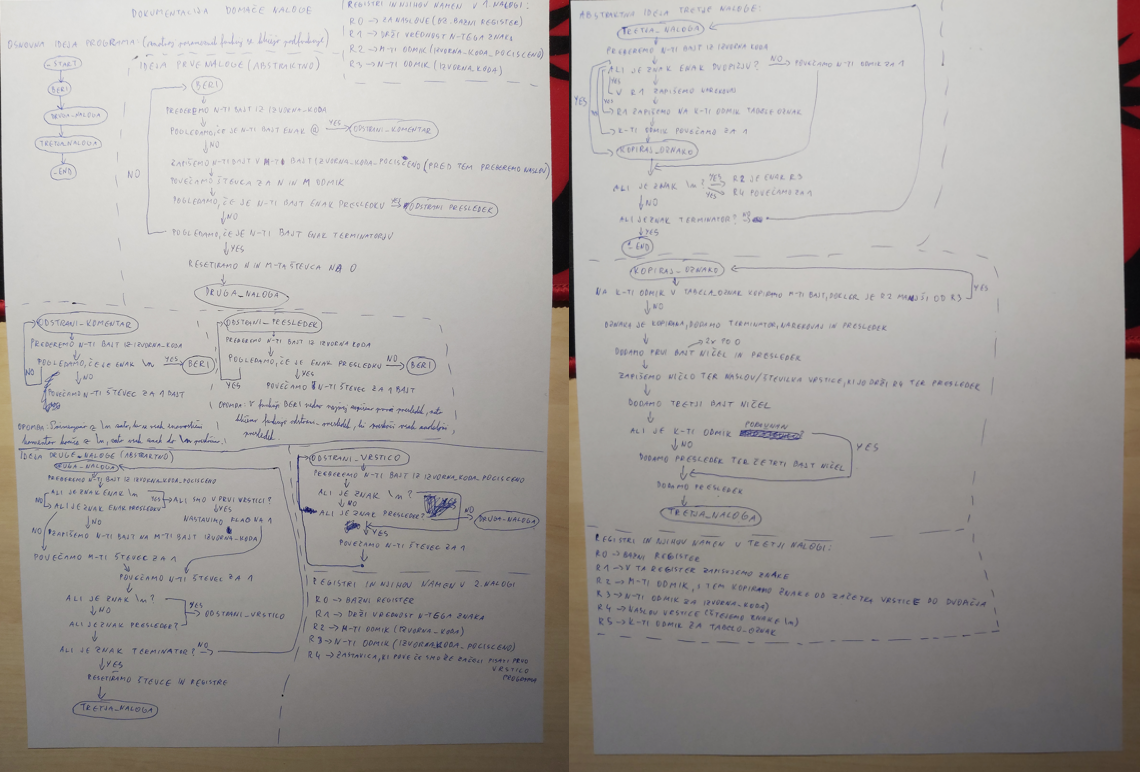 DOKUMENTACIJA DOMAČE NALOGE
OSNOVNA IDEJA PROGRAMA:
_START
BERI
DRUGA_NALOGA
TRETJA_NALOGA
_END
REGISTRI IN NJIHOV NAMEN V 1. NALOGI:
R0 → ZA NASLOVE (OZ. BAZNI REGISTER)
R1 → DRŽI VREDNOST N-TEGA ZNAKA
R2 → M-TI ODMIK (IZVORNA_KODA_POCISCENO)
R3 → N-TI ODMIK (IZVORNA_KODA)
IDEJA PRVE NALOGE (ABSTRAKTNO)
BERI
PREBEREMO N-TI BAJT IZ IZVORNA_KODA
POGLEDAMO, ČE JE N-TI BAJT ENAK @ YES → ODSTRANI_KOMENTAR
NO
ZAPIŠEMO N-TI BAJT V M-TI BAJT (IZVORNA_KODA_POCISCENO) (PRED TEM PREBEREMO NASLOV)
POVEČAMO ŠTEVCA ZA N IN M ODMIK
POGLEDAMO, ČE JE N-TI BAJT ENAK PRESLEDKU YES → ODSTRANI PRESLEDEK
NO
NO
POGLEDAMO, ČE JE N-TI BAJT ENAK TERMINATORJU
YES
RESETIRAMO N IN M-TA ŠTEVCA NA 0
DRUGA_NALOGA
ODSTRANI-KOMENTAR
PREBEREMO N-TI BAJT IZ IZVORNA-KODA
POGLEDAMO, ČE JE ENAK \n YES → BERI
NO
NO
POVEČAMO N-TI ŠTEVEC ZA 1 BAJT
ODSTRANI_PRESLEDEK
PREBEREMO N-TI BAJT IZ IZVORNA KODA
POGLEDAMO, ČE JE ENAK PRESLEDKU NO → BERI
YES
YES
POVEČAMO N-TI ŠTEVEC ZA 1 BAJT
OPOMBA: V funkciji BERI vedno najprej zapišemo prvi presledek, nato
kličemo funkcijo odstrani_presledek, ki
presledek.
OPOMBA: \n zato, ker se vsak
komentar konča z \n, zato vsak znak do \n
IDEJA DRUGE NALOGE (ABSTRAKTNO)
DRUGA_NALOGA
PREBEREMO N-TI BAJT IZ IZVORNA_KODA_POCISCENO
ALI JE ZNAK ENAK \n YES → ALI SMO V PRVI VRSTICI?
NO
ALI JE ZNAK ENAK PRESLEDKU
YES
NO
NASTAVIMO R4 NA 1
NO
ZAPIŠEMO N-TI BAJT NA M-TI BAJT IZVORNA_KODA
POVEČAMO M-TI ŠTEVEC ZA 1
POVEČAMO N-TI ŠTEVEC ZA 1
ALI JE ZNAK \n?
NO
YES → ODSTRANI_VRSTICO
ALI JE ZNAK PRESLEDEK?
ALI JE ZNAK TERMINATOR? NO
YES
RESETIRAMO ŠTEVCE IN REGISTRE
TRETJA_NALOGA
ODSTRANI_VRSTICO
PREBEREMO N-TI BAJT IZ IZVORNA_KODA_POCISCENO
ALI JE ZNAK \n?
NO
ALI JE ZNAK PRESLEDEK?
NO → DRUGA_NALOGA
YES
POVEČAMO N-TI ŠTEVEC ZA 1
REGISTRI IN NJIHOV NAMEN V 2. NALOGI
R0 → BAZNI REGISTER
R1 → DRŽI VREDNOST N-TEGA ZNAKA
R2 → M-TI ODMIK (IZVORNA_KODA)
R3 → N-TI ODMIK (IZVORNA_KODA_POCISCENO)
R4 → ZASTAVICA, KI POVE ČE SMO ŽE ZAČELI PISATI PRVO
VRSTICO
PROGRAMA
ABSTRAKTNA IDEJA TRETJE NALOGE:
TRETJA_NALOGA
PREBEREMO N-TI BAJT IZ IZVORNA KODA
ALI JE ZNAK ENAK DVOPIČJU? NO → POVEČAMO N-TI ODMIK ZA 1
YES
V R1 ZAPIŠEMO NAREKOVAJ
YES
YES
R1 ZAPIŠEMO NA K-TI ODMIK TABELE OZNAK
YES
K-TI ODMIK POVEČAMO ZA 1
KOPIRAJ_OZNAKO
ALI JE ZNAK \n? YES → R2 JE ENAK R3
YES → R4 POVEČAMO ZA 1
NO
ALI JE ZNAK TERMINATOR? NO
YES
_END
KOPIRAJ_OZNAKO
YES
NA K-TI ODMIK V TABELA_OZNAK KOPIRAMO M-TI BAJT, DOKLER JE R2 MANJŠI OD R3
NO
OZNAKA JE KOPIRANA, DODAMO TERMINATOR, NAREKOVAJ IN PRESLEDEK
DODAMO PRVI BAJT NIČEL IN PRESLEDEK
ZAPIŠEMO NIČLO TER NASLOV/ŠTEVILKA VRSTICE, KI JO DRŽI R4 TER PRESLEDEK
DODAMO TRETJI BAJT NIČEL
ALI JE K-TI ODMIK PORAVNAN?
YES
NO
DODAMO PRESLEDEK TER ČETRTI BAJT NIČEL
DODAMO PRESLEDEK
TRETJA_NALOGA
REGISTRI IN NJIHOV NAMEN V TRETJI NALOGI:
R0 → BAZNI REGISTER
R1 → V TA REGISTER ZAPISUJEMO ZNAKE
R2 → M-TI ODMIK, S TEM KOPIRAMO ZNAKO OD ZAČETKA VRSTICE DO DVOPIČJA
R3 → N-TI ODMIK ZA IZVORNA_KODA)
R4 → NASLOV VRSTICE (ŠTEJEMO ZNAKE \n)
R5 → K-TI ODMIK ZA TABELO_OZNAK